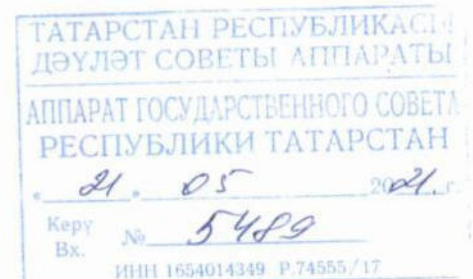 ТАТАРСТАН РЕСПУБЛИКАСЫ
ДӘҮЛӘТ СОВЕТЫ АППАРАТЫ
АППАРАТ ГОСУДАРСТВЕННОГО СОВЕТА
РЕСПУБЛИКИ ТАТАРСТАН
« 21 » 05 2021 г.
Керү
Вх. № 5489
ИНН 1654014349 Р.74555/17